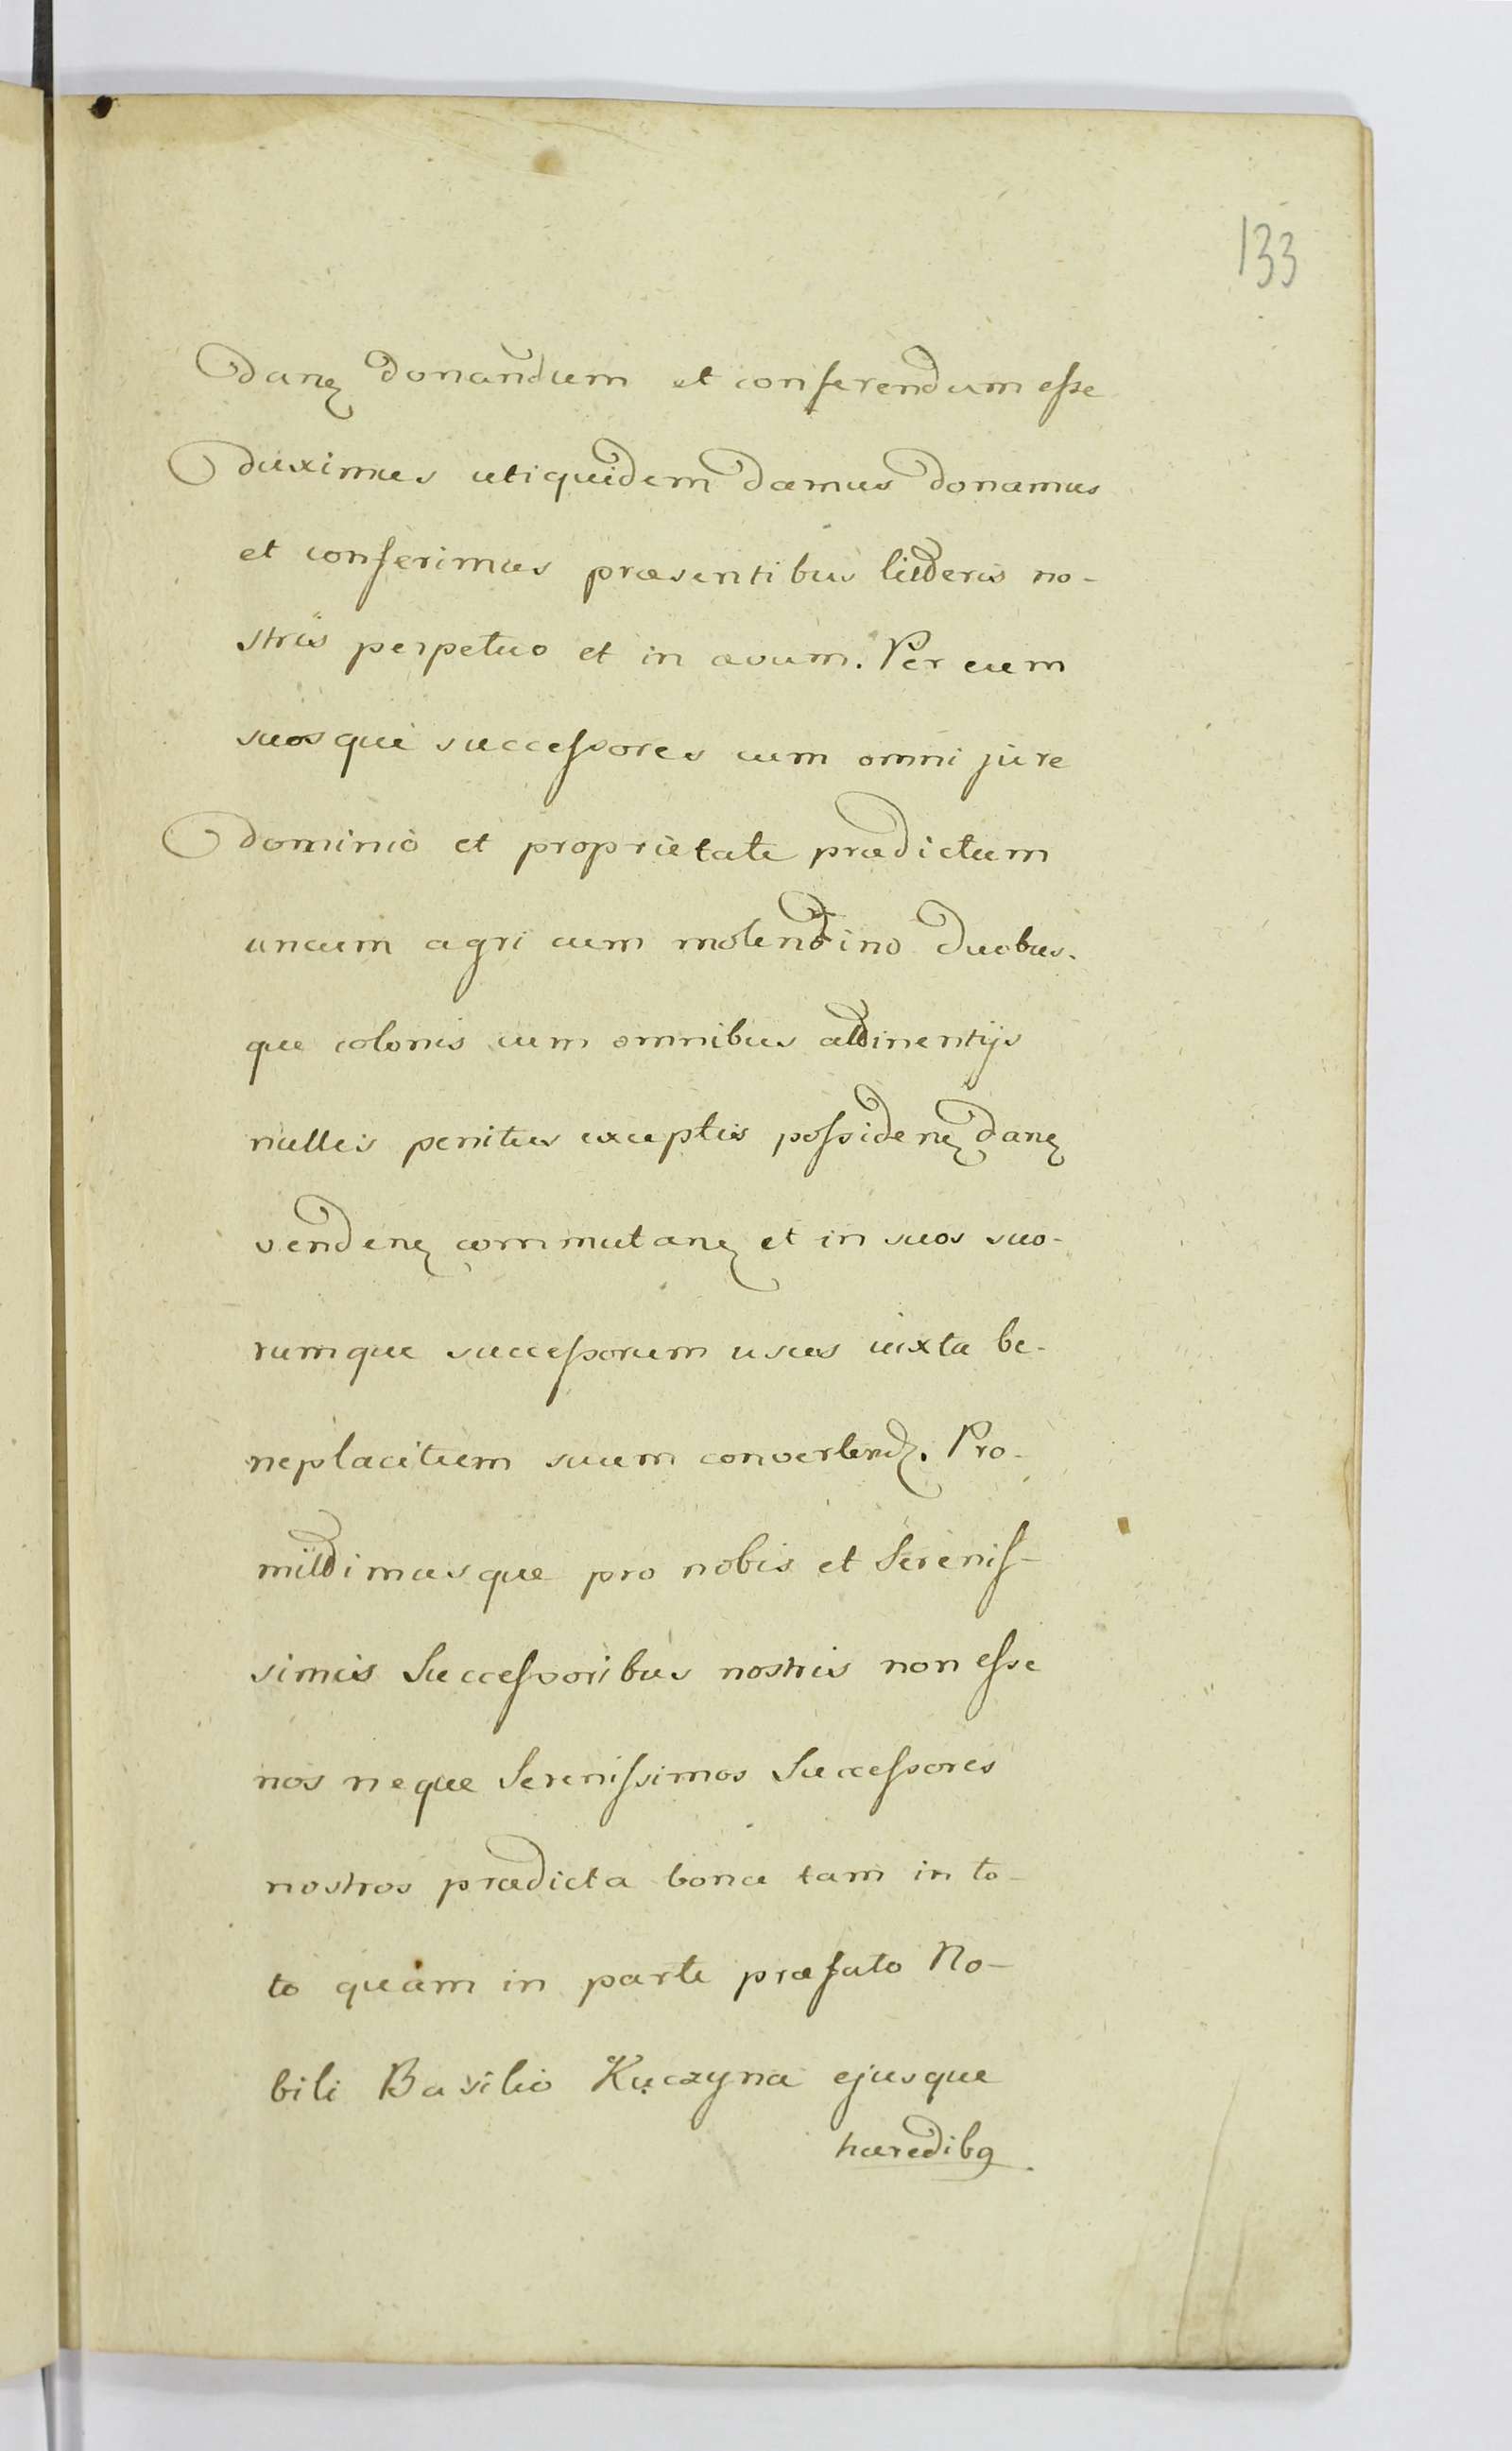 133
danȝ donandum et conferendum esse
duximus utiquidem damus donamus
et conferimus præsentibus litteris no-
stris perpetuo et in ævum. Per eum
suosque successores cum omni jure
dominio et proprietate prædictum
uncum agri cum molendino duobus-
que colonis cum omnibus attinentijs
nullis penitus exceptis possidenȝ danȝ
vendenȝ commutanȝ et in suos suo-
rumque successorum usus iuxta be-
neplacitum suum convertendȝ. Pro-
mittimusque pro nobis et Serenis-
simis Successoribus nostris non esse
nos neque Serenissimos Successores
nostros prædicta bona tam in to-
to quam in parte præfato No-
bili Basilio Kuczyna ejusque
hæredibꝯ